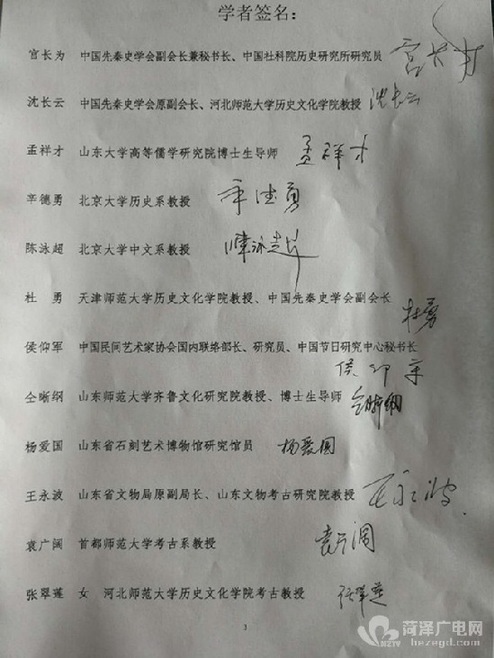 学者签名：
宫长为 中国先秦史学会副会长兼秘书长、中国社科院历史研究所研究员 宫长为
沈长云 中国先秦史学会原副会长、河北师范大学历史文化学院教授 沈长云
孟祥才 山东大学高等儒学研究院博士生导师 孟祥才
辛德勇 北京大学历史系教授 辛德勇
陈泳超 北京大学中文系教授 陈泳超
杜 勇 天津师范大学历史文化学院教授、中国先秦史学会副会长 杜勇
侯仰军 中国民间艺术家协会国内联络部长、研究员、中国节日研究中心秘书长
侯仰军
仝晰纲 山东师范大学齐鲁文化研究院教授、博士生导师 仝晰纲
杨爱国 山东省石刻艺术博物馆研究馆员 杨爱国
王永波 山东省文物局原副局长、山东文物考古研究院教授 王永波
袁广阔 首都师范大学考古系教授 袁广阔
张翠莲 女 河北师范大学历史文化学院考古教授 张翠莲
3
菏泽广电网
HZTV hezegd.com